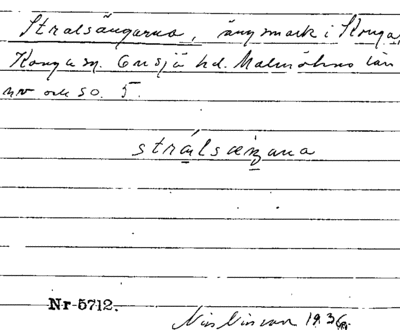 Stralsängarna, ängsmark i Konga,
Konga sn. Onsjö hd. Malmöhus län
nv och so. 5.
strálsæŋana
Nr 5712.
Nils Nilsson 1936